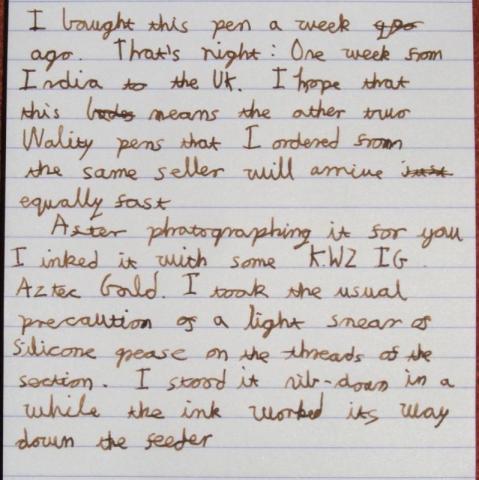 I bought this pen a week ago
ago. That's right: One week from
India to the UK. I hope that
this bodes means the other two
Wality pens that I ordered from
the same seller will arrive just
equally fast
After photographing it for you
I inked it with some KWZ IG
Aztec Gold. I took the usual
precaution of a light smear of
silicone grease on the threads of the
section. I stood it nib-down in a
while the ink worked its way
down the feeder